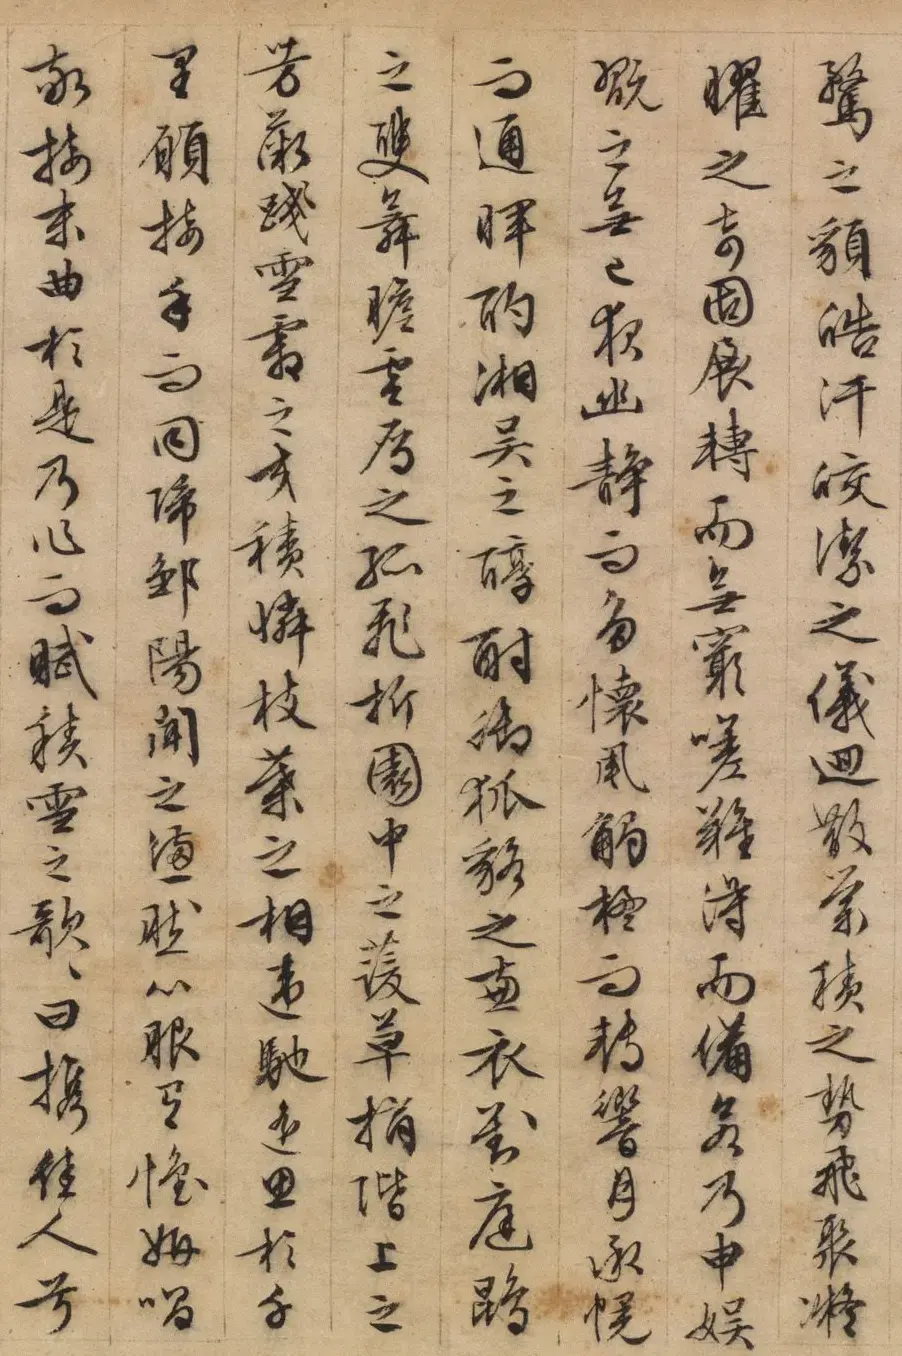 騖之貌皓汗皎潔之儀迴散縈積之勢飛聚凝
曜之奇固展轉而無窮嗟難得而備若乃申娱
翫之無已夜幽静而多懷風觸楹而轉響月承幌
而通暉酌湘吴之醇酎御狐貉之兼衣對庭鵾
之雙舞瞻雲鴈之孤飛折園中之蘐草摘階上之
芳薇踐雪霜之交積憐枝葉之相違馳遥思於千
里願接手而同歸鄒陽聞之懣然心服有懷妍唱
敬接末曲於是乃作而賦積雪之歌〻曰攜佳人兮